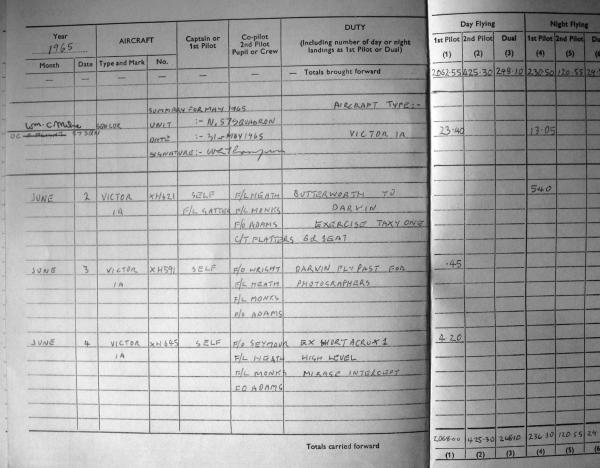 Year
1965
AIRCRAFT
Captain or
1st Pilot
Co-pilot
2nd Pilot
Pupil or Crew
DUTY
(Including number of day or night
landings as 1st Pilot or Dual)
Day Flying
Night Flying
Month Date Type and Mark No.
1st Pilot 2nd Pilot Dual 1st Pilot 2nd Pilot
(1) (2) (3) (4) (5) (6
— — — — — — Totals brought forward
2062·55 425·30 248·10 230·50 120·55
SUMMARY FOR MAY 1965 AIRCRAFT TYPE:-
UNIT :- No. 57 SQUADRON
DATE :- 31st MAY 1965 VICTOR 1A 23·40 13·05
SIGNATURE:-
OC 57 SQN
JUNE 2 VICTOR XH621 SELF F/L HEATH BUTTERWORTH TO 5·40
1A F/L GATTER F/L MONKS DARWIN
F/O ADAMS EXERCISE TAXY ONE
C/T PLATTERS 6th SEAT
JUNE 3 VICTOR XH591 SELF F/O WRIGHT DARWIN FLYPAST FOR ·45
1A F/L HEATH PHOTOGRAPHERS
F/L MONKS
F/O ADAMS
JUNE 4 VICTOR XH645 SELF F/O SEYMOUR EX SHORT ACRUX 1 4·20
1A F/L HEATH HIGH LEVEL
F/L MONKS MIRAGE INTERCEPT
F/O ADAMS
Totals carried forward
2068·00 425·30 248·10 236·30 120·55
(1) (2) (3) (4) (5) (6